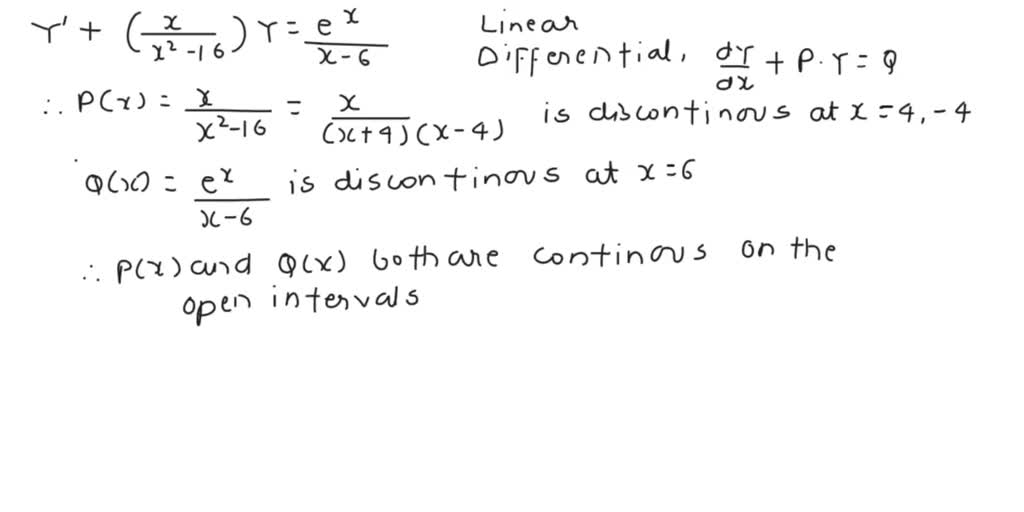 Y' + (x/(x²-16)) Y = eˣ/(x-6)    Linear
Differential, dY/dx + P·Y = Q
∴ P(x) = x/(x²-16) = x/((x+4)(x-4)) is discontinous at x = 4, -4
Q(x) = eˣ/(x-6) is discontinous at x = 6
∴ P(x) and Q(x) both are continous on the
open intervals